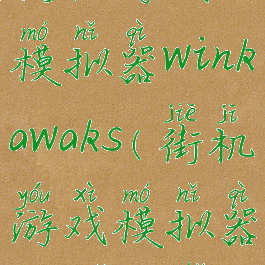 mó nǐ qì
模拟器wink
jiē jī
awaks(街机
yóu xì mó nǐ qì
游戏模拟器